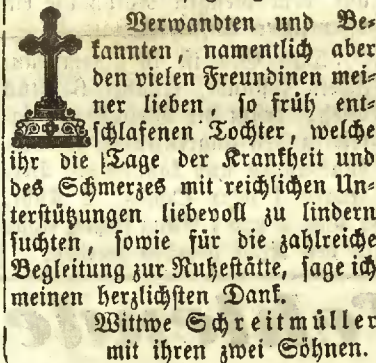 Verwandten und Be=
kannten, namentlich aber
den vielen Freundinen mei=
ner lieben, so früh ent=
schlafenen Tochter, welche
ihr die Tage der Krankheit und
des Schmerzes mit reichlichen Un=
terstützungen liebevoll zu lindern
suchten, sowie für die zahlreiche
Begleitung zur Ruhestätte, sage ich
meinen herzlichsten Dank.
Wittwe Schreitmüller
mit ihren zwei Söhnen.